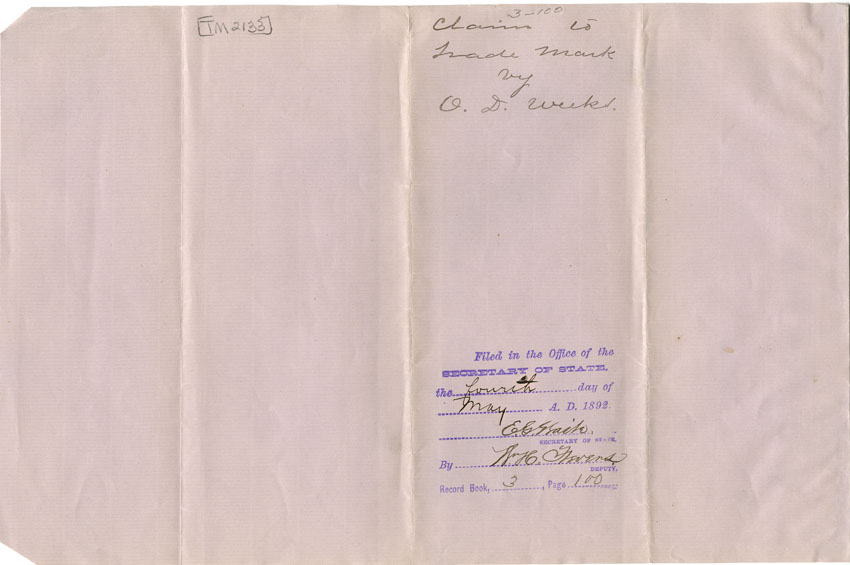 TM2135
3-100
Claim to
Trade Mark
by
O. D. Weeks.
Filed in the Office of the
SECRETARY OF STATE,
the fourth day of
May A. D. 1892.
E. G. Waite,
SECRETARY OF STATE,
By W. H.
DEPUTY,
Record Book, 3, Page 100